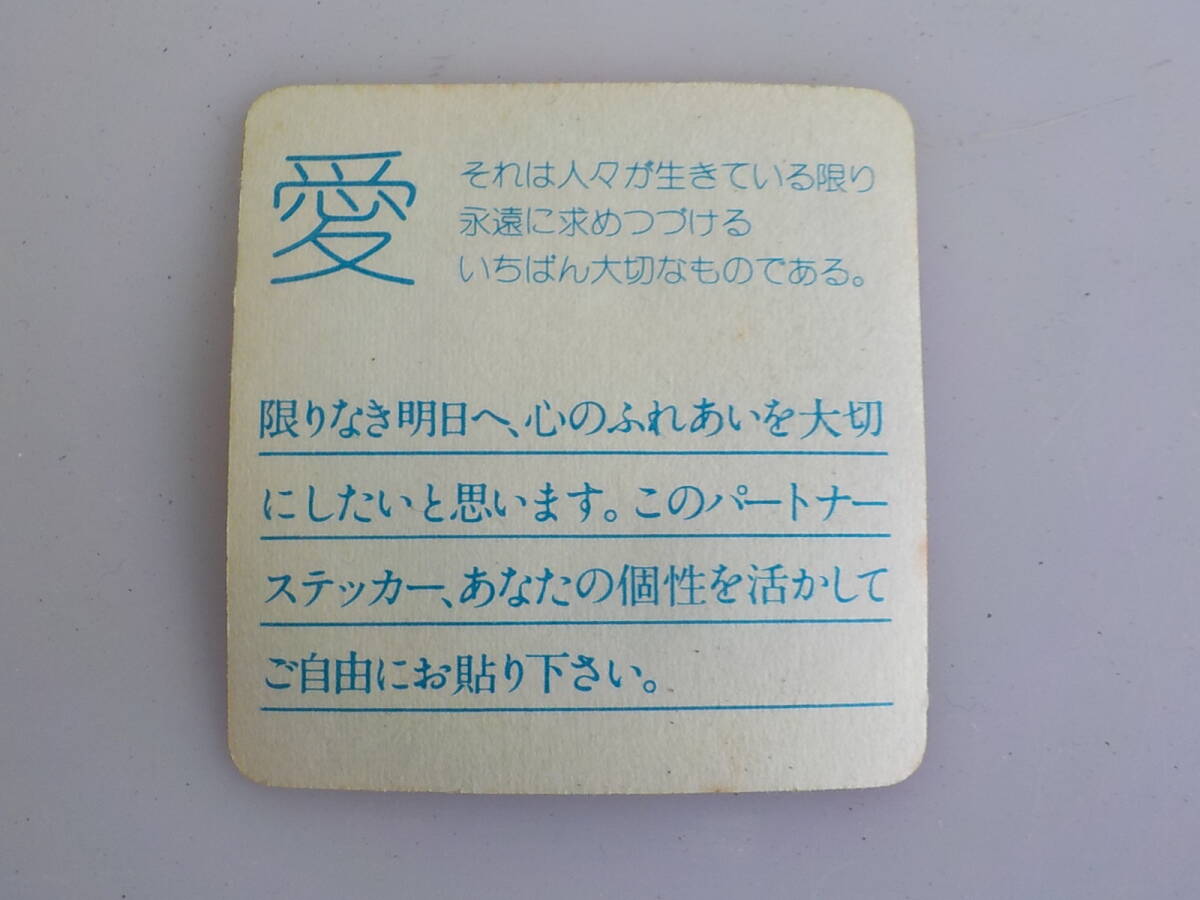 愛
それは人々が生きている限り
永遠に求めつづける
いちばん大切なものである。
限りなき明日へ、心のふれあいを大切
にしたいと思います。このパートナー
ステッカー、あなたの個性を活かして
ご自由にお貼り下さい。